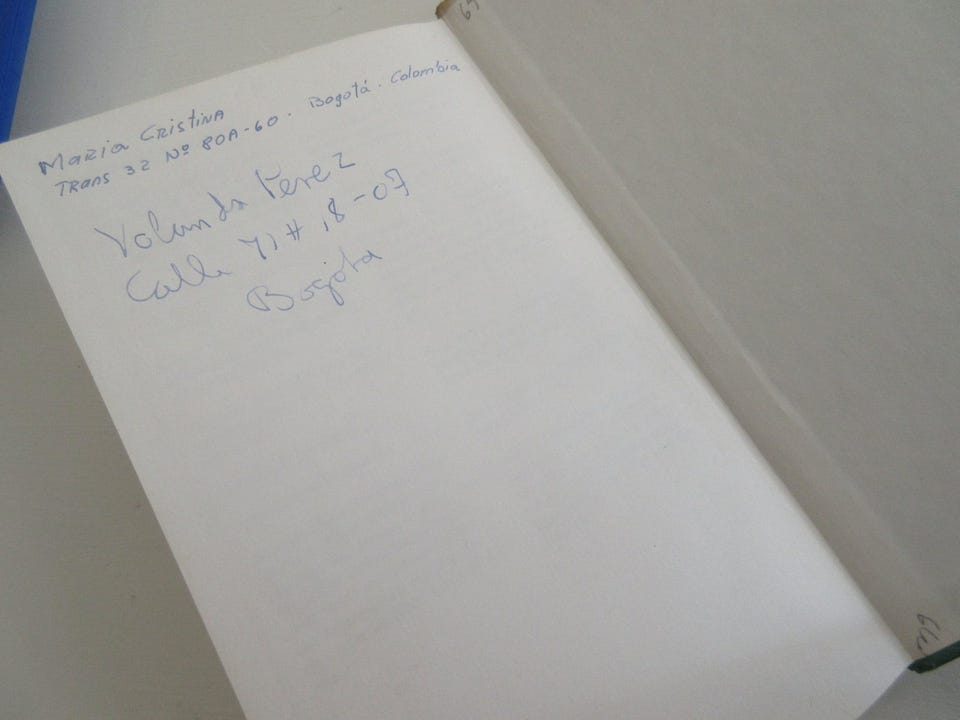 MARIA CRISTINA
TRANS 32 Nº 80A-60. Bogotá. Colombia
Yolanda Perez
Calle 71 # 18-07
Bogota